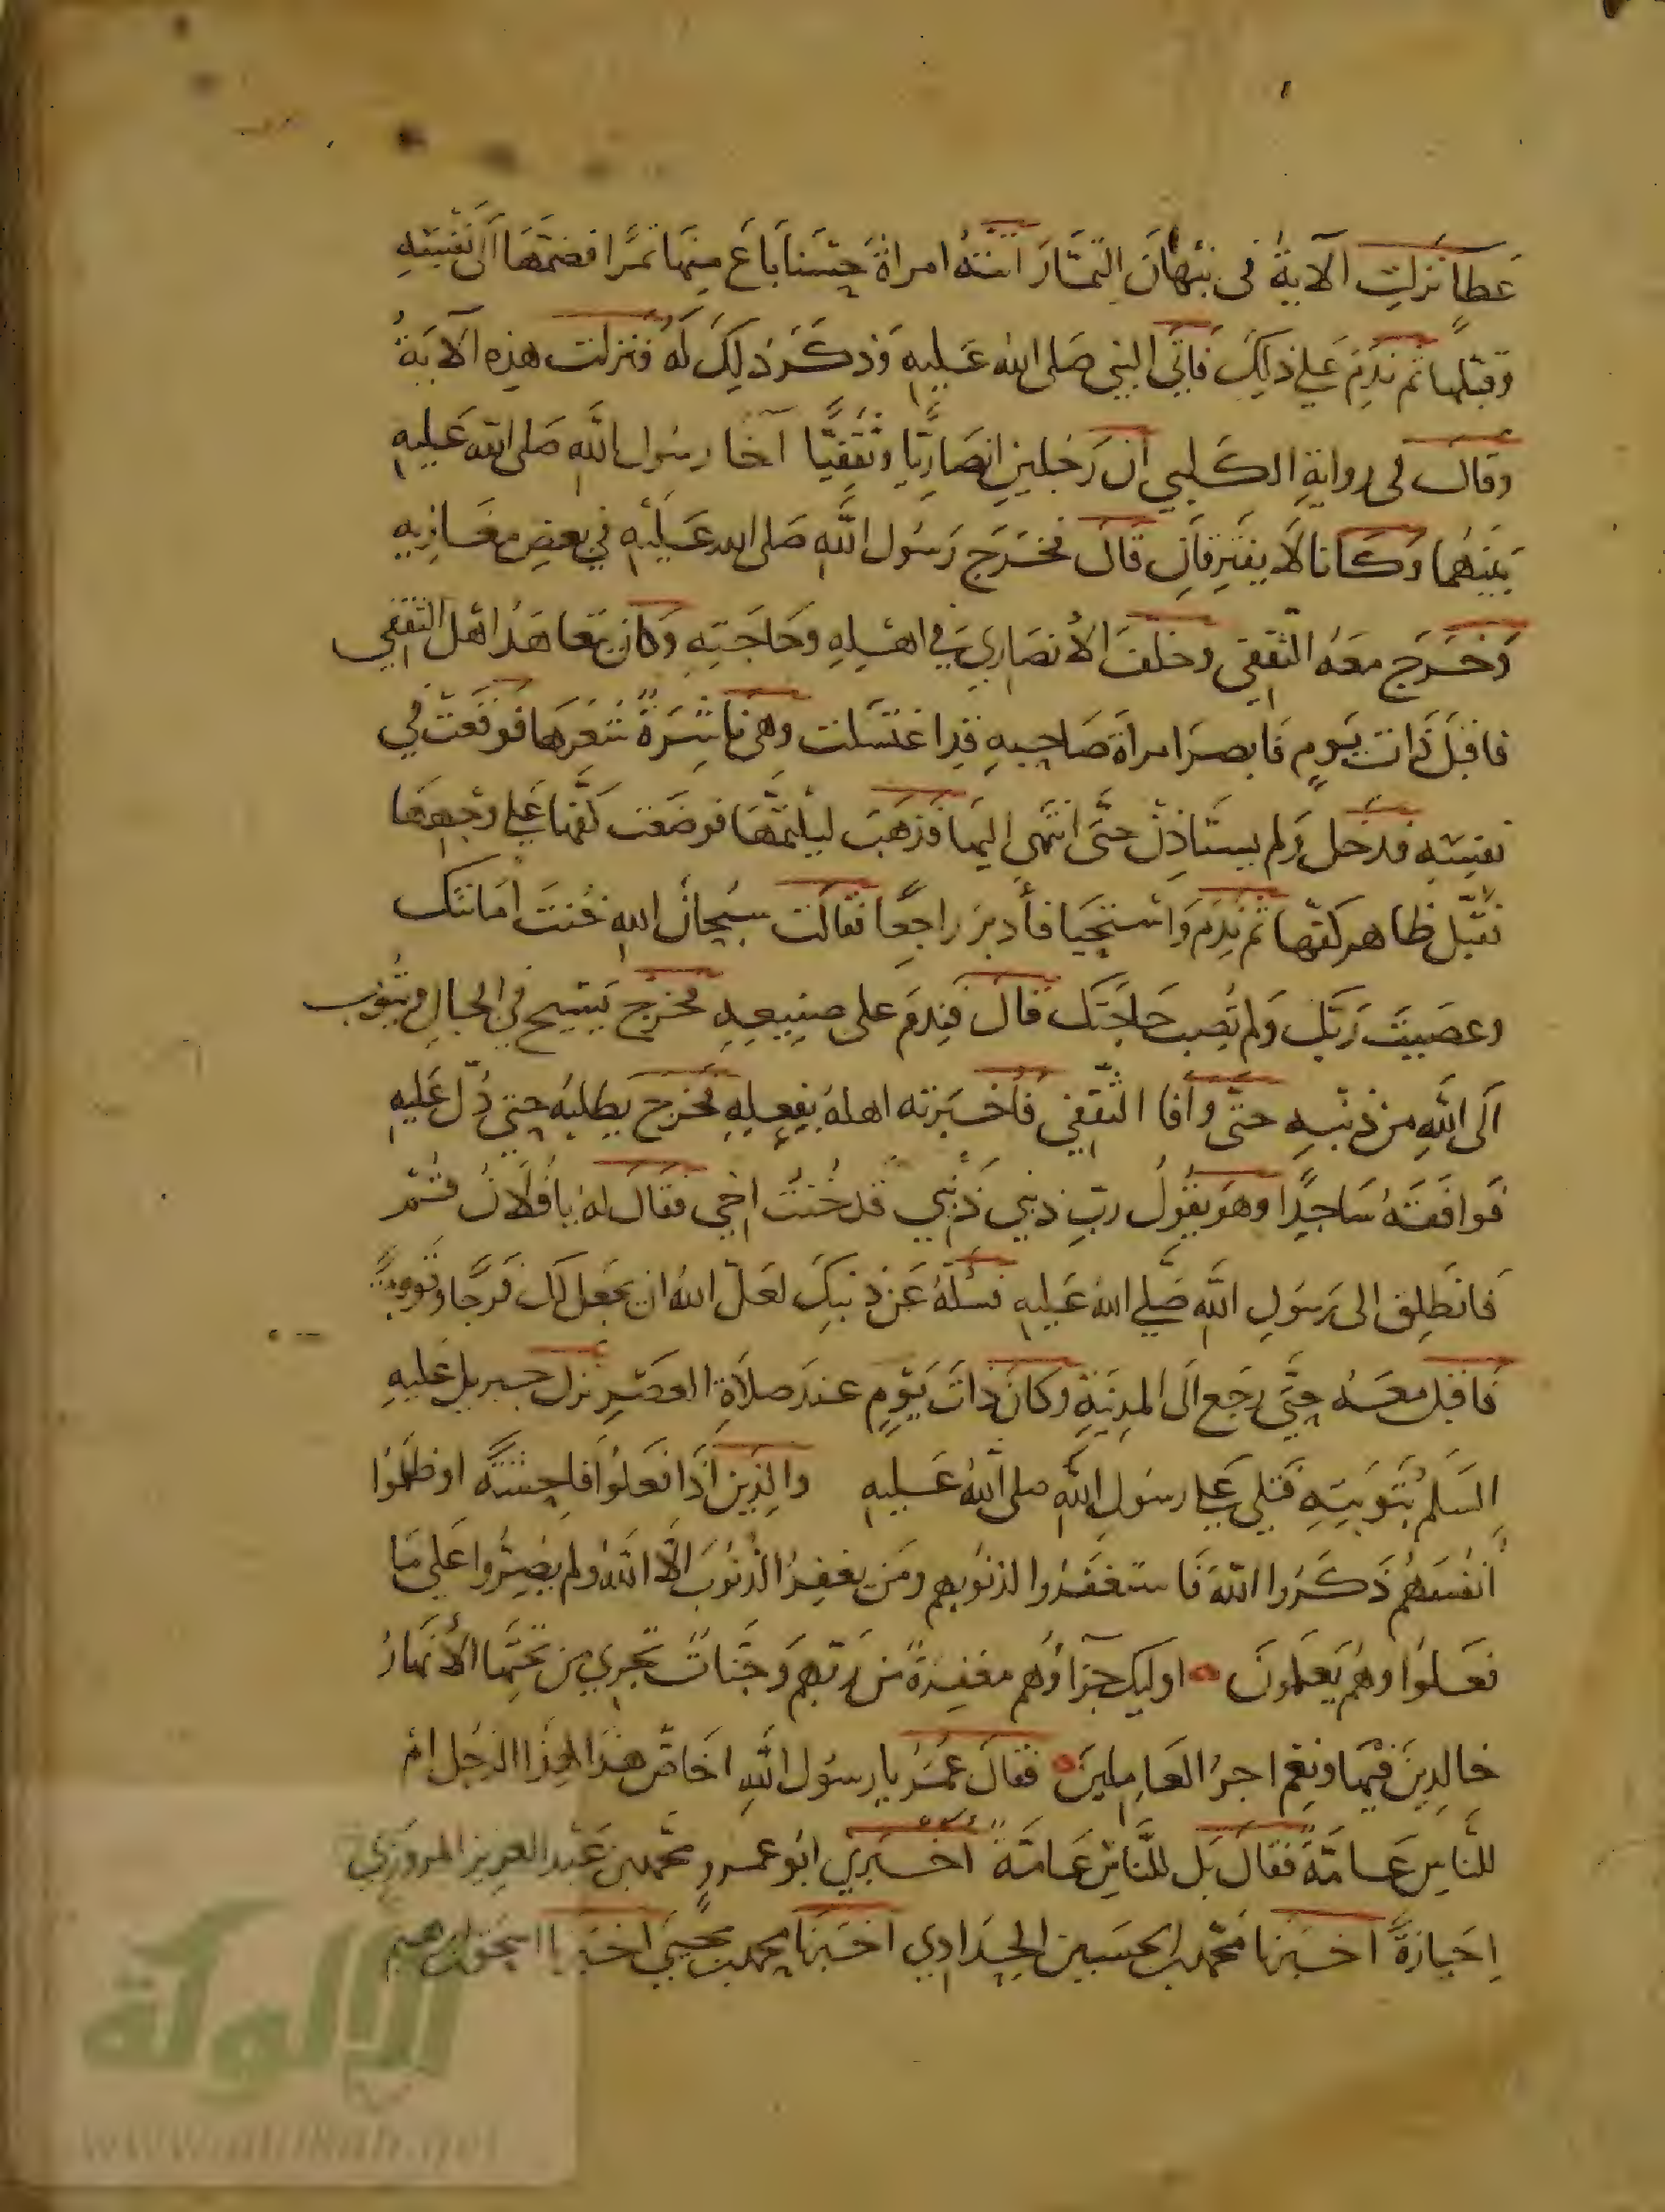 عَطَا نزلتِ الآيةُ في نبهانَ التمَّارَ اتتهُ امراةٌ حسنا باعَ منها تمرًا فضمَّها الى نفسِهِ
وقبّلها ثم ندِمَ على ذلكَ فاتى النبي صَلى الله عَليهِ وَذكَرَ ذلِكَ لهُ فنزلت هذِهِ الآيَةُ
وقالَ في روايةِ الكَلبي ان رَجلينِ انصَاريًّا وثقفيًّا آخا رسُول اللهِ صَلى الله عَليهِ
بَينهُما وَكانا لَا يفترِقانِ قالَ فخرَج رَسُول اللهِ صَلى الله عَليْهِ في بعضِ مغَازِيهِ
وَخرَج معَهُ الثقفي وخلفَ الأنصَارِيَ في اهلِهِ وحَاجَتِهِ وَكانَ يتعاهَدُ اهْل الثقفي
فاقبَلَ ذاتَ يَومٍ فَابصرَ امراةَ صَاحِبِهِ قدِ اغتسَلت وهي ناشِرَةٌ شعَرهَا فوقعَتْ في
نفسِهِ فدخل وَلم يستاذِنْ حتَّى انتهَى اليهَا فذهَبَ ليلثمَّهَا فوضعَت كفَّها على وجهِهَا
فقبَّل ظاهر كفّها ثم نَدِمَ وَاستحيَا فأدبرَ راجِعًا فقالَت سبُحانَ اللهِ خُنتَ امَانتك
وعصَيتَ رَبَّكَ وَلم تُصِب حَاجَتك قالَ فندِمَ على صنيعِهِ فخرَج يَسِيح في الجبالِ ويتُوب
الَى اللهِ مِن ذنْبِهِ حتَّى وافا الثقفي فأخبرَته اهلهُ بِفعلِهِ فخرج يطلبُهُ حتى دُلَّ عَليهِ
فوافقَهُ سَاجِدًا وهوَ يقُولُ ربِّ ذنبي ذَنْبي قد خُنتُ اخي فقالَ لهُ يا فُلَانُ قُمْ
فَانطَلِق الى رَسُولِ اللهِ صَلى اللهُ عَليهِ فسَلهُ عَن ذنبِكَ لعَلَّ اللهُ ان يجعَل لكَ فَرَجًا وتوبةً
فَاقبل معَهُ حتَّى رجَع الَى المدِينةِ وكانَ ذاتَ يَوْمٍ عندَ صلَاةِ العصْرِ نزلَ جبريل عَليهِ
السَلم بتَوبتِهِ فتلى عَلى رسُولِ اللهِ صلى اللهُ عَليهِ والذِينَ اذَا فعَلُوا فاحِشَةً او ظلَمُوا
أنفُسَهُم ذَكَرُوا اللهَ فَاستغفَرُوا لذنُوبِهِم ومَن يغفِرُ الذُنوُبَ الَّا اللهُ ولم يصِرُّوا عَلى مَا
فعَلُوا وهُم يَعلَمُونَ اوليك جزاؤُهم مغفِرةٌ من ربّهِم وَجنّاتٌ تجرِي من تحتِهَا الأنهَارُ
خالِدِينَ فيهَا ونِعم اجرُ العَامِلينَ فقالَ عُمَرُ يا رسُول اللهِ اخَاصٌّ هذا لهذَا الرجُل ام
للنَاسِ عَامَّةً فقالَ بَل للنّاسِ عَامَّةً أخبَرني ابُو عمرو محمّد بن عَبْد العزِيز المروَزِي
اِجَازَةً اخبَرنا محمّد بن الحسَين الحدَادِي اخبَرنَا محمد بن يحيَى اخبَرنا اسحق بن ابرهيم